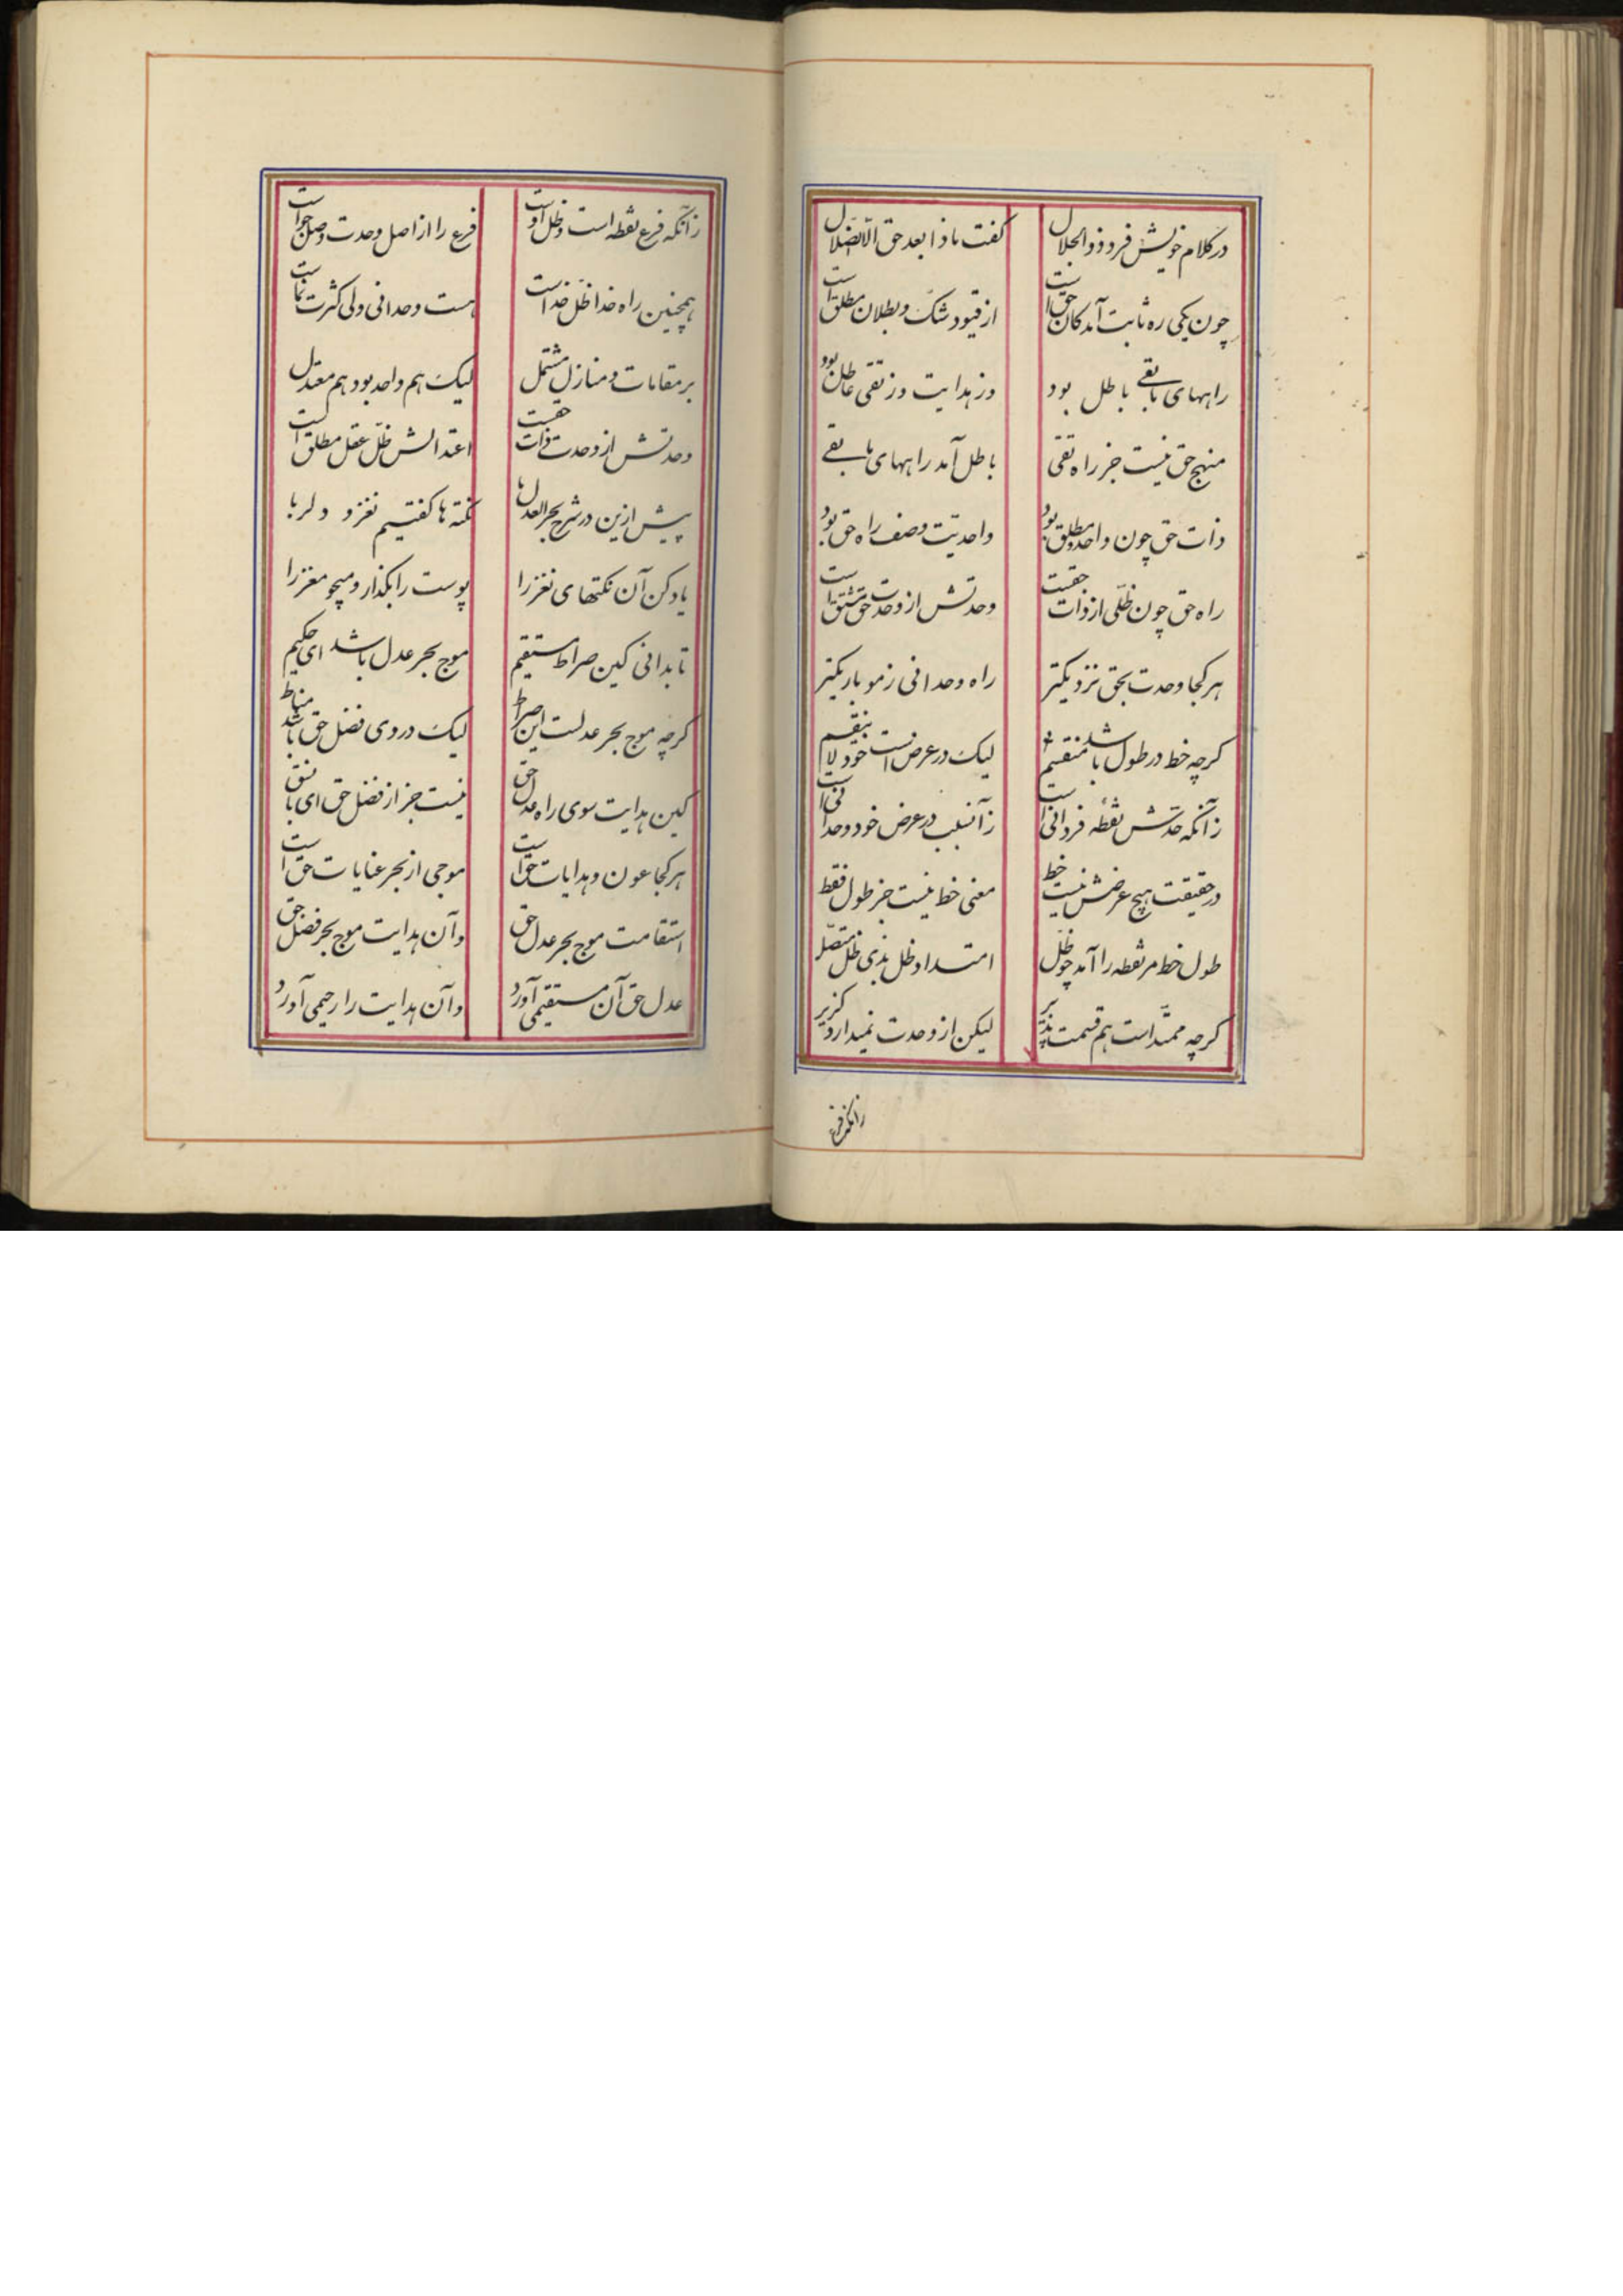 در کلام خویش فرد ذوالجلال
گفت ماذا بعد حق الا الضلال
چون یکی ره ثابت آمد کان حق است
از قیود شک و بطلان مطلق است
راههای مابقی باطل بود
وز هدایت وز تقی عاطل بود
منهج حق نیست جز راه تقی
باطل آمد راههای مابقی
ذات حق چون واحد مطلق بود
واحدیت وصف راه حق بود
راه حق چون ظلی از ذات حقست
وحدتش از وحدت حق مشتق است
هر کجا وحدت بحق نزدیکتر
راه وحدانی ز مو باریکتر
گرچه خط در طول باشد منقسم
لیک در عرض است خود لا ینقسم
زآنکه حدش نقطه فردانی است
زآنسبب در عرض خود وحدانی است
در حقیقت هیچ عرضش نیست خط
معنی خط نیست جز طول فقط
طول خط مر نقطه را آمد چو ظل
امتداد ظل بذی ظل متصل
گرچه ممتد است هم قسمت پذیر
لیکن از وحدت نمیدارد گزیر
زانکه فرع
زآنکه فرع نقطه است و ظل اوست
فرع را از اصل وحدت وصل جواست
همچنین راه خدا ظل خداست
هست وحدانی ولی کثرت نماست
بر مقامات و منازل مشتمل
لیک هم واحد بود هم معتدل
وحدتش از وحدت ذات حقست
اعتدالش ظل عقل مطلق است
پیش ازین در شرح بحر العدل ها
نکته ها گفتیم نغز و دلربا
یاد کن آن نکتهای نغز را
پوست را بگذار و میجو مغز را
تا بدانی کین صراط مستقیم
موج بحر عدل باشد ای حکیم
گرچه موج بحر عدلست این صراط
لیک در وی فضل حق باشد مناط
کین هدایت سوی راه عدل حق
نیست جز از فضل حق ای با نسق
هر کجا عون و هدایات حق است
موجی از بحر عنایات حق است
استقامت موج بحر عدل حق
وآن هدایت موج بحر فضل حق
عدل حق آن مستقیمی آورد
وآن هدایت را رحیمی آورد